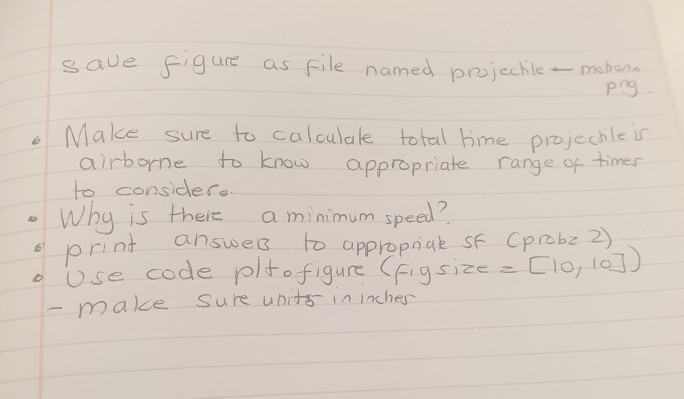 save figure as file named projectile - motion.
png
• Make sure to calculate total time projectile is
airborne to know appropriate range of times
to consider.
• Why is there a minimum speed?
• print answers to appropriate sf (prob 2)
• Use code plt.figure (figsize = [10, 10])
- make sure units in inches